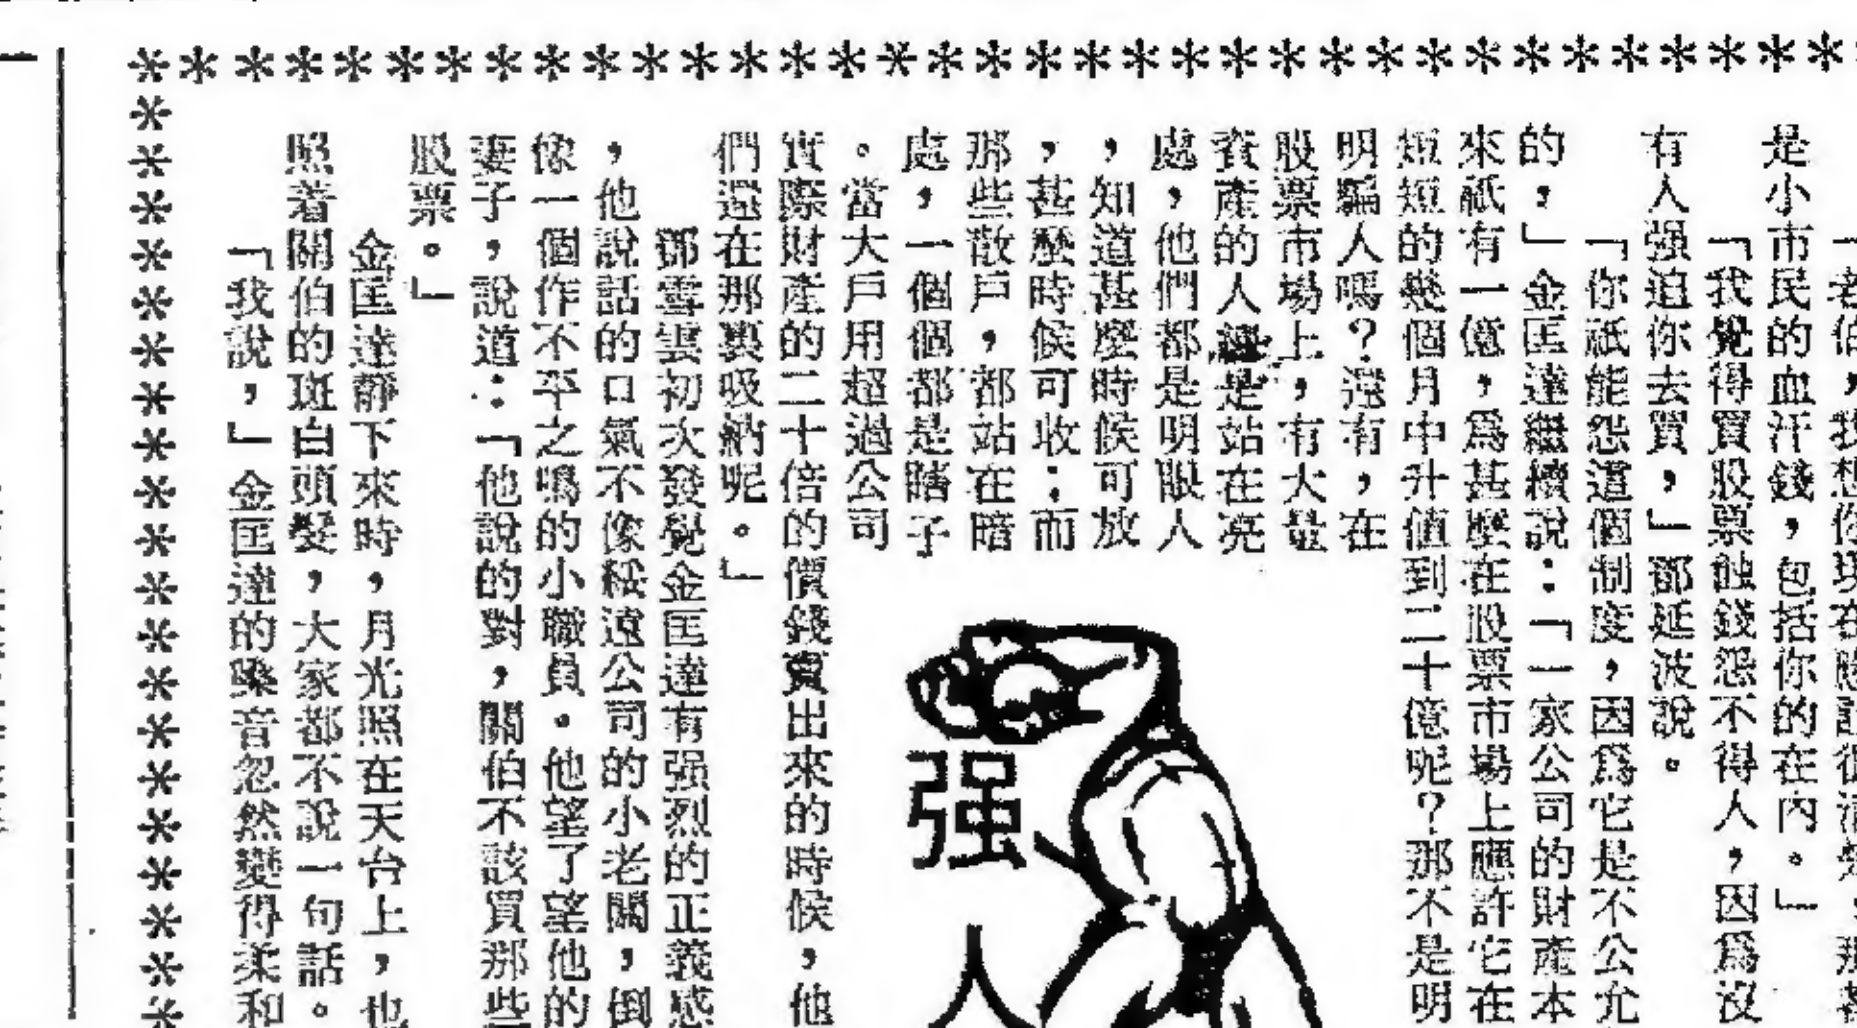 「老伯，我想你現在應該很清楚，那
是小市民的血汗錢，包括你的在內。」
「我覺得買股票蝕錢怨不得人，因爲沒
有人强迫你去買，」鄧延波說。
「你祇能怨這個制度，因爲它是不公允
的，」金匡達繼續說：「一家公司的財產本
來祇有一億，爲甚麼在股票市場上應許它在
短短的幾個月中升值到二十億呢？那不是明
明騙人嗎？還有，在
股票市場上，有大量
資產的人總是站在亮
處，他們都是明眼人
，知道甚麼時候可放
，甚麼時候可收；而
那些散戶，都站在暗
處，一個個都是瞎子
。當大戶用超過公司
實際財產的二十倍的價錢賣出來的時候，他
們還在那裏吸納呢。」
鄧雲雲初次發覺金匡達有强烈的正義感
，他說話的口氣不像綏遠公司的小老闆，倒
像一個作不平之鳴的小職員。他望了望他的
妻子，說道：「他說的對，關伯不該買那些
股票。」
金匡達靜下來時，月光照在天台上，也
照着關伯的斑白頭髮，大家都不說一句話。
「我說，」金匡達的嗓音忽然變得柔和
强人